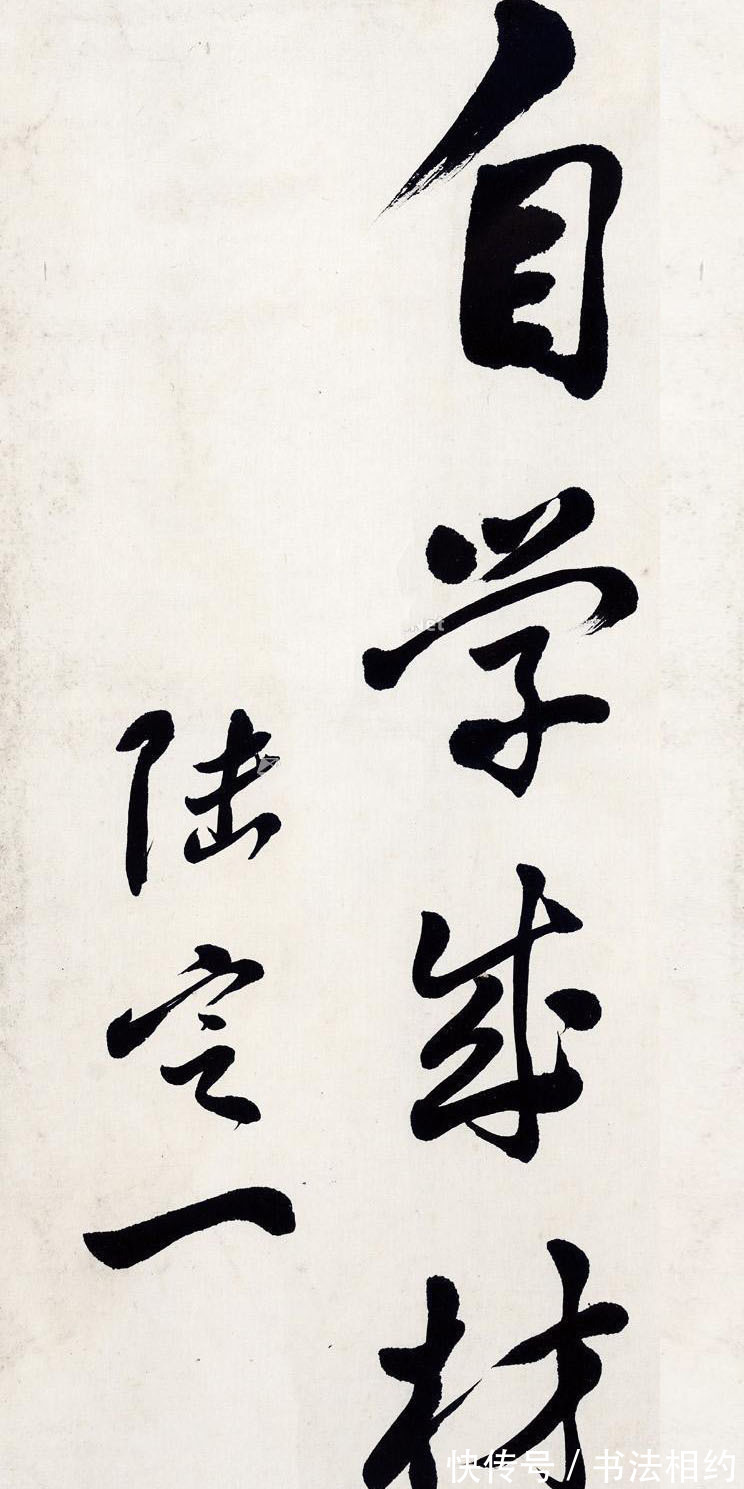 自学成材
陆定一
快传号 / 书法相约